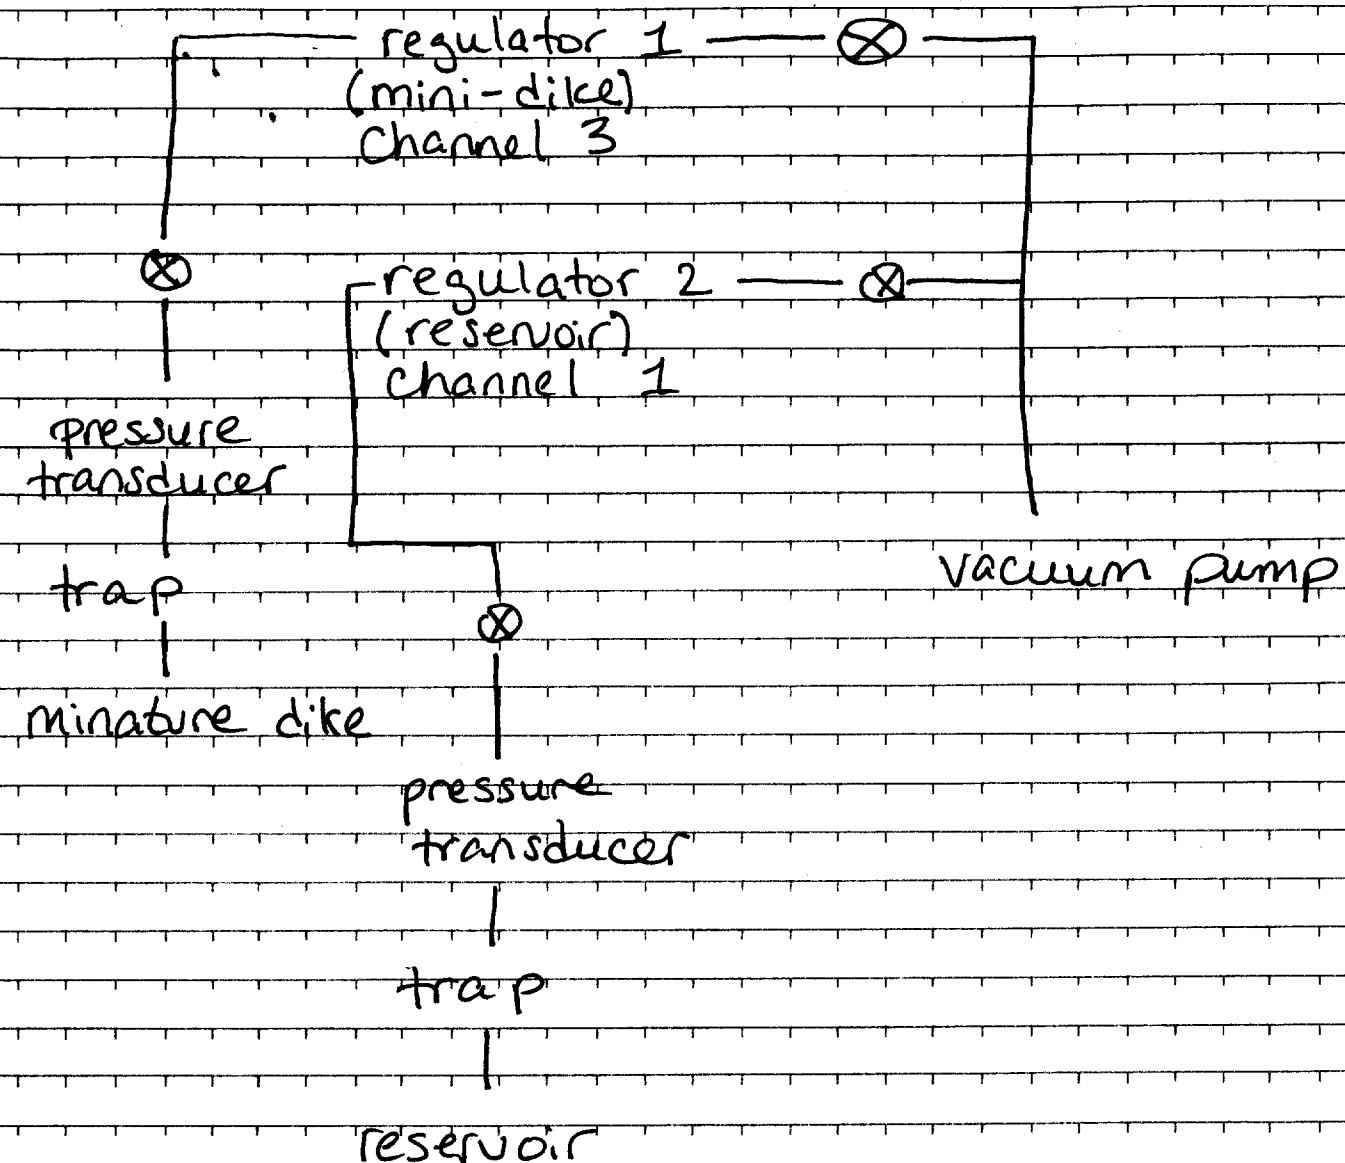 regulator 1
(mini-dike)
Channel 3
regulator 2
(reservoir)
channel 1
pressure
transducer
trap
minature dike
vacuum pump
pressure
transducer
trap
reservoir